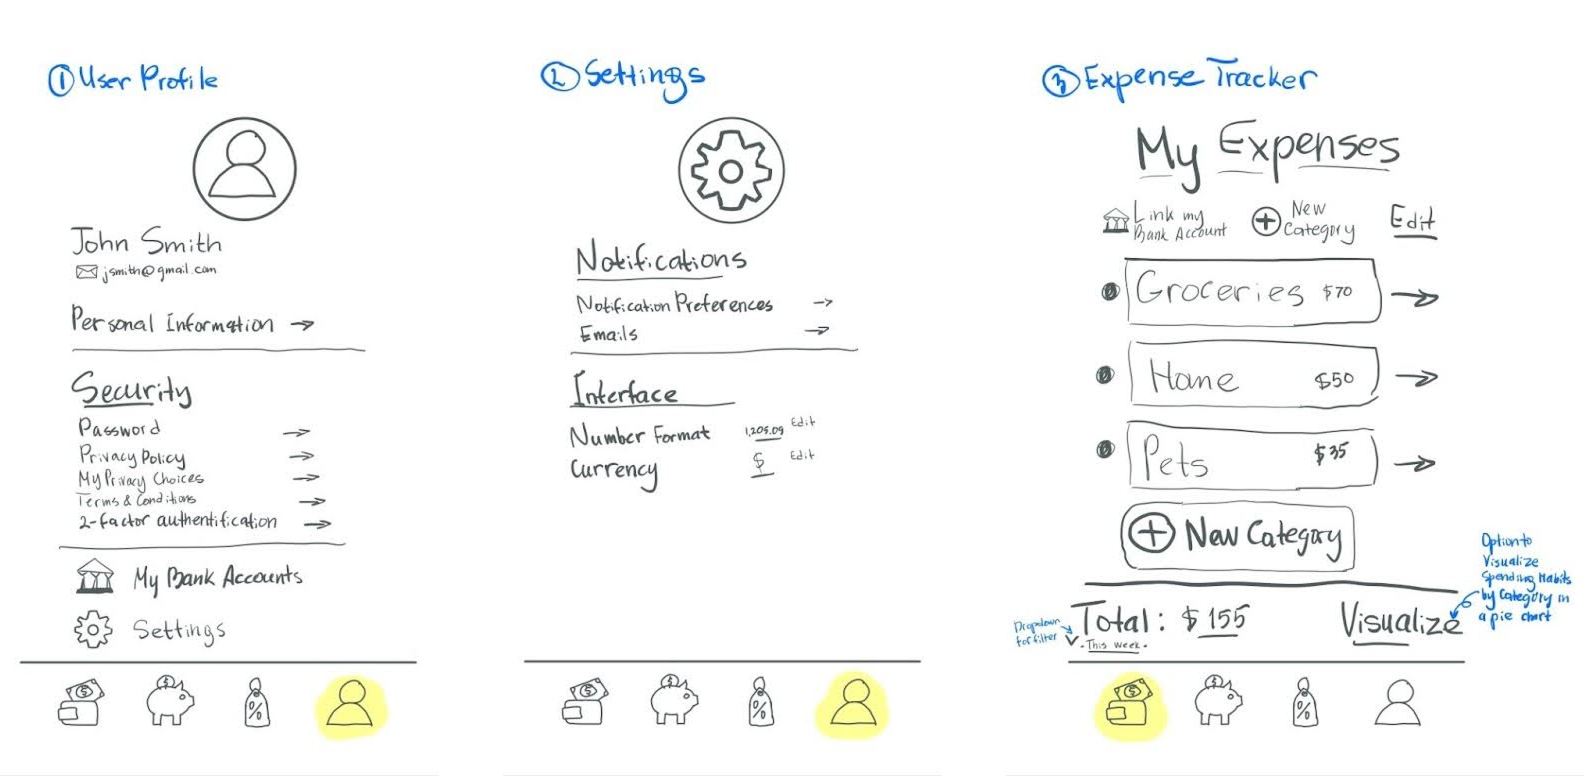 ① User Profile
John Smith
jsmith@gmail.com
Personal Information →
Security
Password →
Privacy Policy →
My Privacy Choices →
Terms & Conditions →
2-factor authentification →
My Bank Accounts
Settings
$
$
%
② Settings
Notifications
Notification Preferences →
Emails →
Interface
Number Format 1,205.09 Edit
Currency $ Edit
$
$
%
③ Expense Tracker
My Expenses
Link my
Bank Account
New
Category
Edit
Groceries $70 →
Home $50 →
Pets $35 →
+ New Category
Option to
Visualize
Spending Habits
by Category in
a pie chart
Dropdown
for filter
Total: $155
This week
Visualize
$
$
%